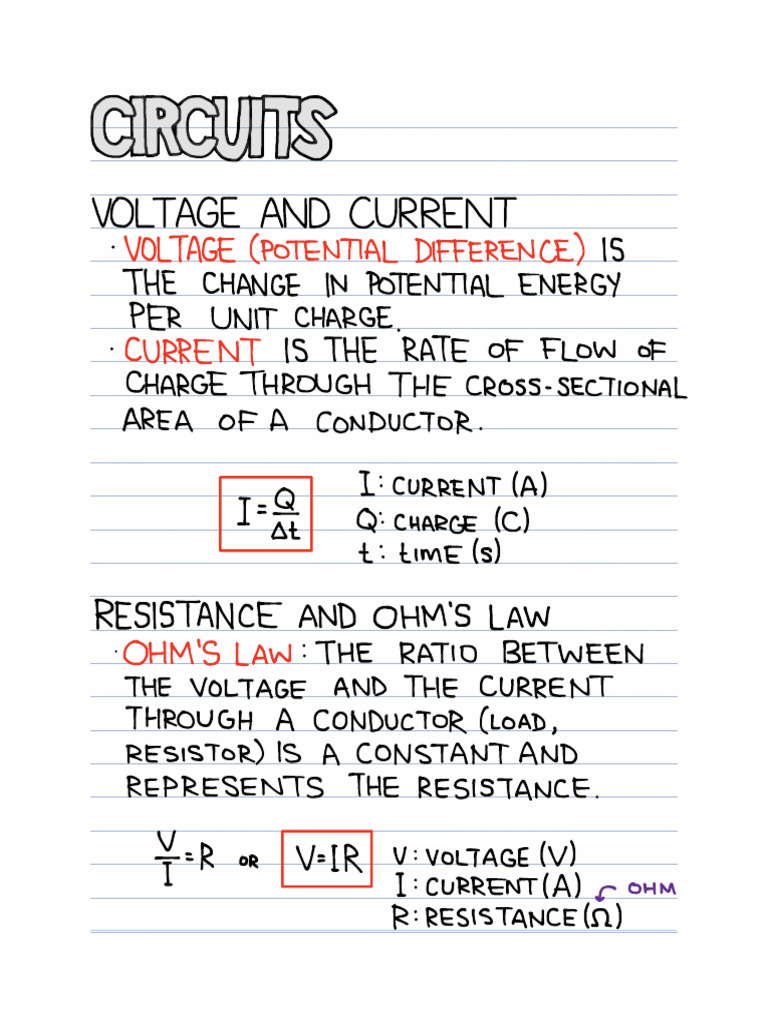 CIRCUITS
VOLTAGE AND CURRENT
· VOLTAGE (POTENTIAL DIFFERENCE) IS
THE CHANGE IN POTENTIAL ENERGY
PER UNIT CHARGE.
· CURRENT IS THE RATE OF FLOW OF
CHARGE THROUGH THE CROSS-SECTIONAL
AREA OF A CONDUCTOR.
I = Q/Δt
I: CURRENT (A)
Q: CHARGE (C)
t: tIME (s)
RESISTANCE AND OHM'S LAW
· OHM'S LAW: THE RATIO BETWEEN
THE VOLTAGE AND THE CURRENT
THROUGH A CONDUCTOR (LOAD,
RESISTOR) IS A CONSTANT AND
REPRESENTS THE RESISTANCE.
V/I = R OR V=IR
V: VOLTAGE (V)
I: CURRENT (A) OHM
R: RESISTANCE (Ω)